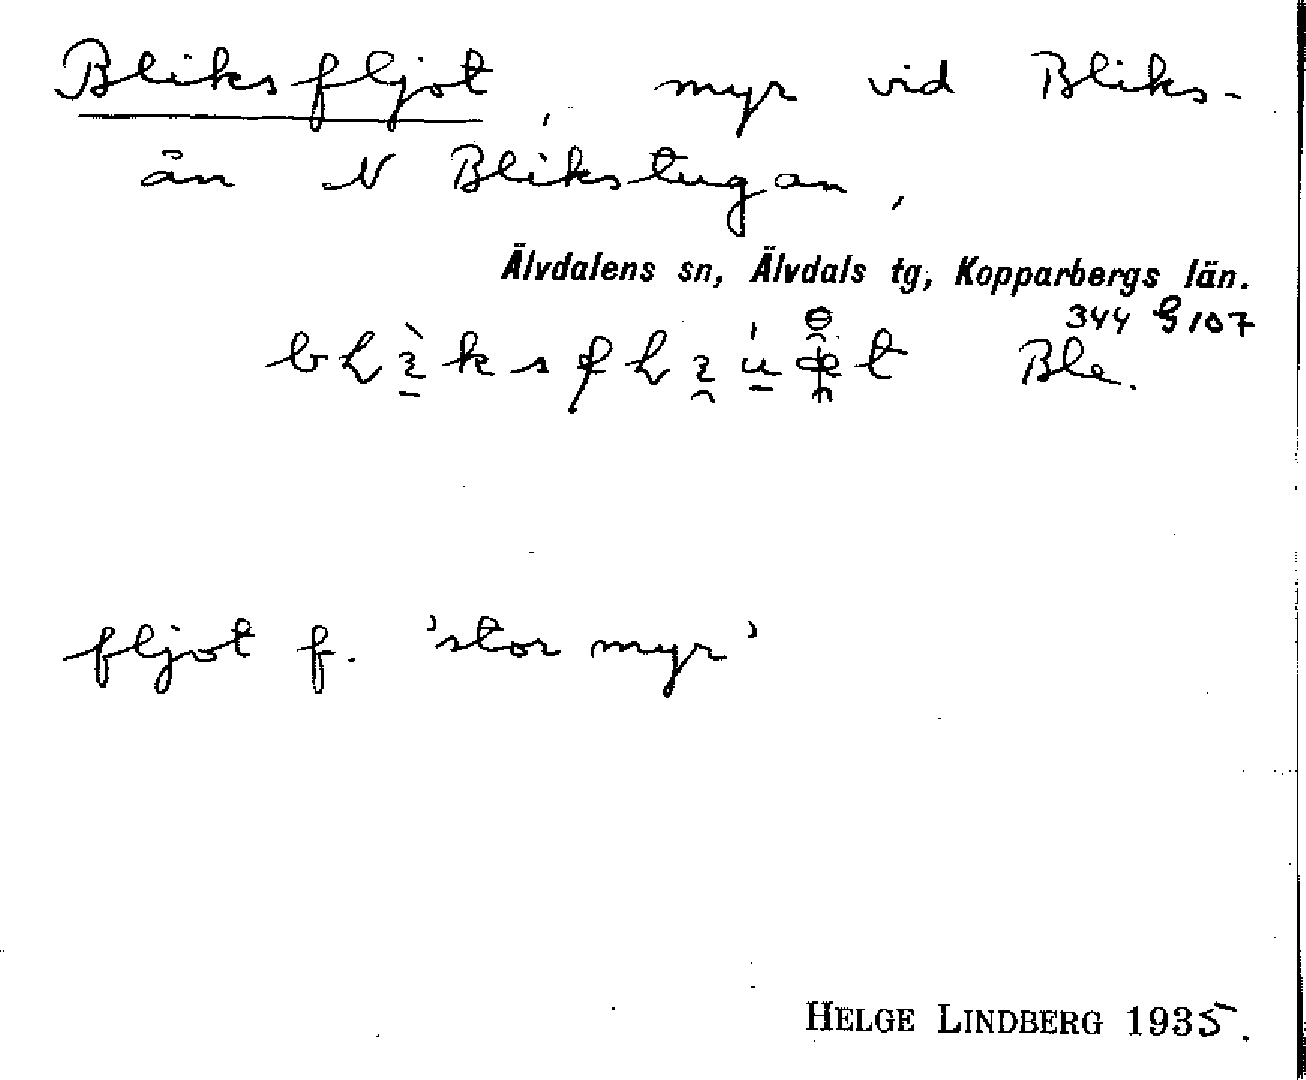 Bliksfljot, myr vid Bliks-
ån N Blikstugan,
Älvdalens sn, Älvdals tg, Kopparbergs län.
344 G 107
Ble.
fljot f. 'stor myr'
HELGE LINDBERG 1935.